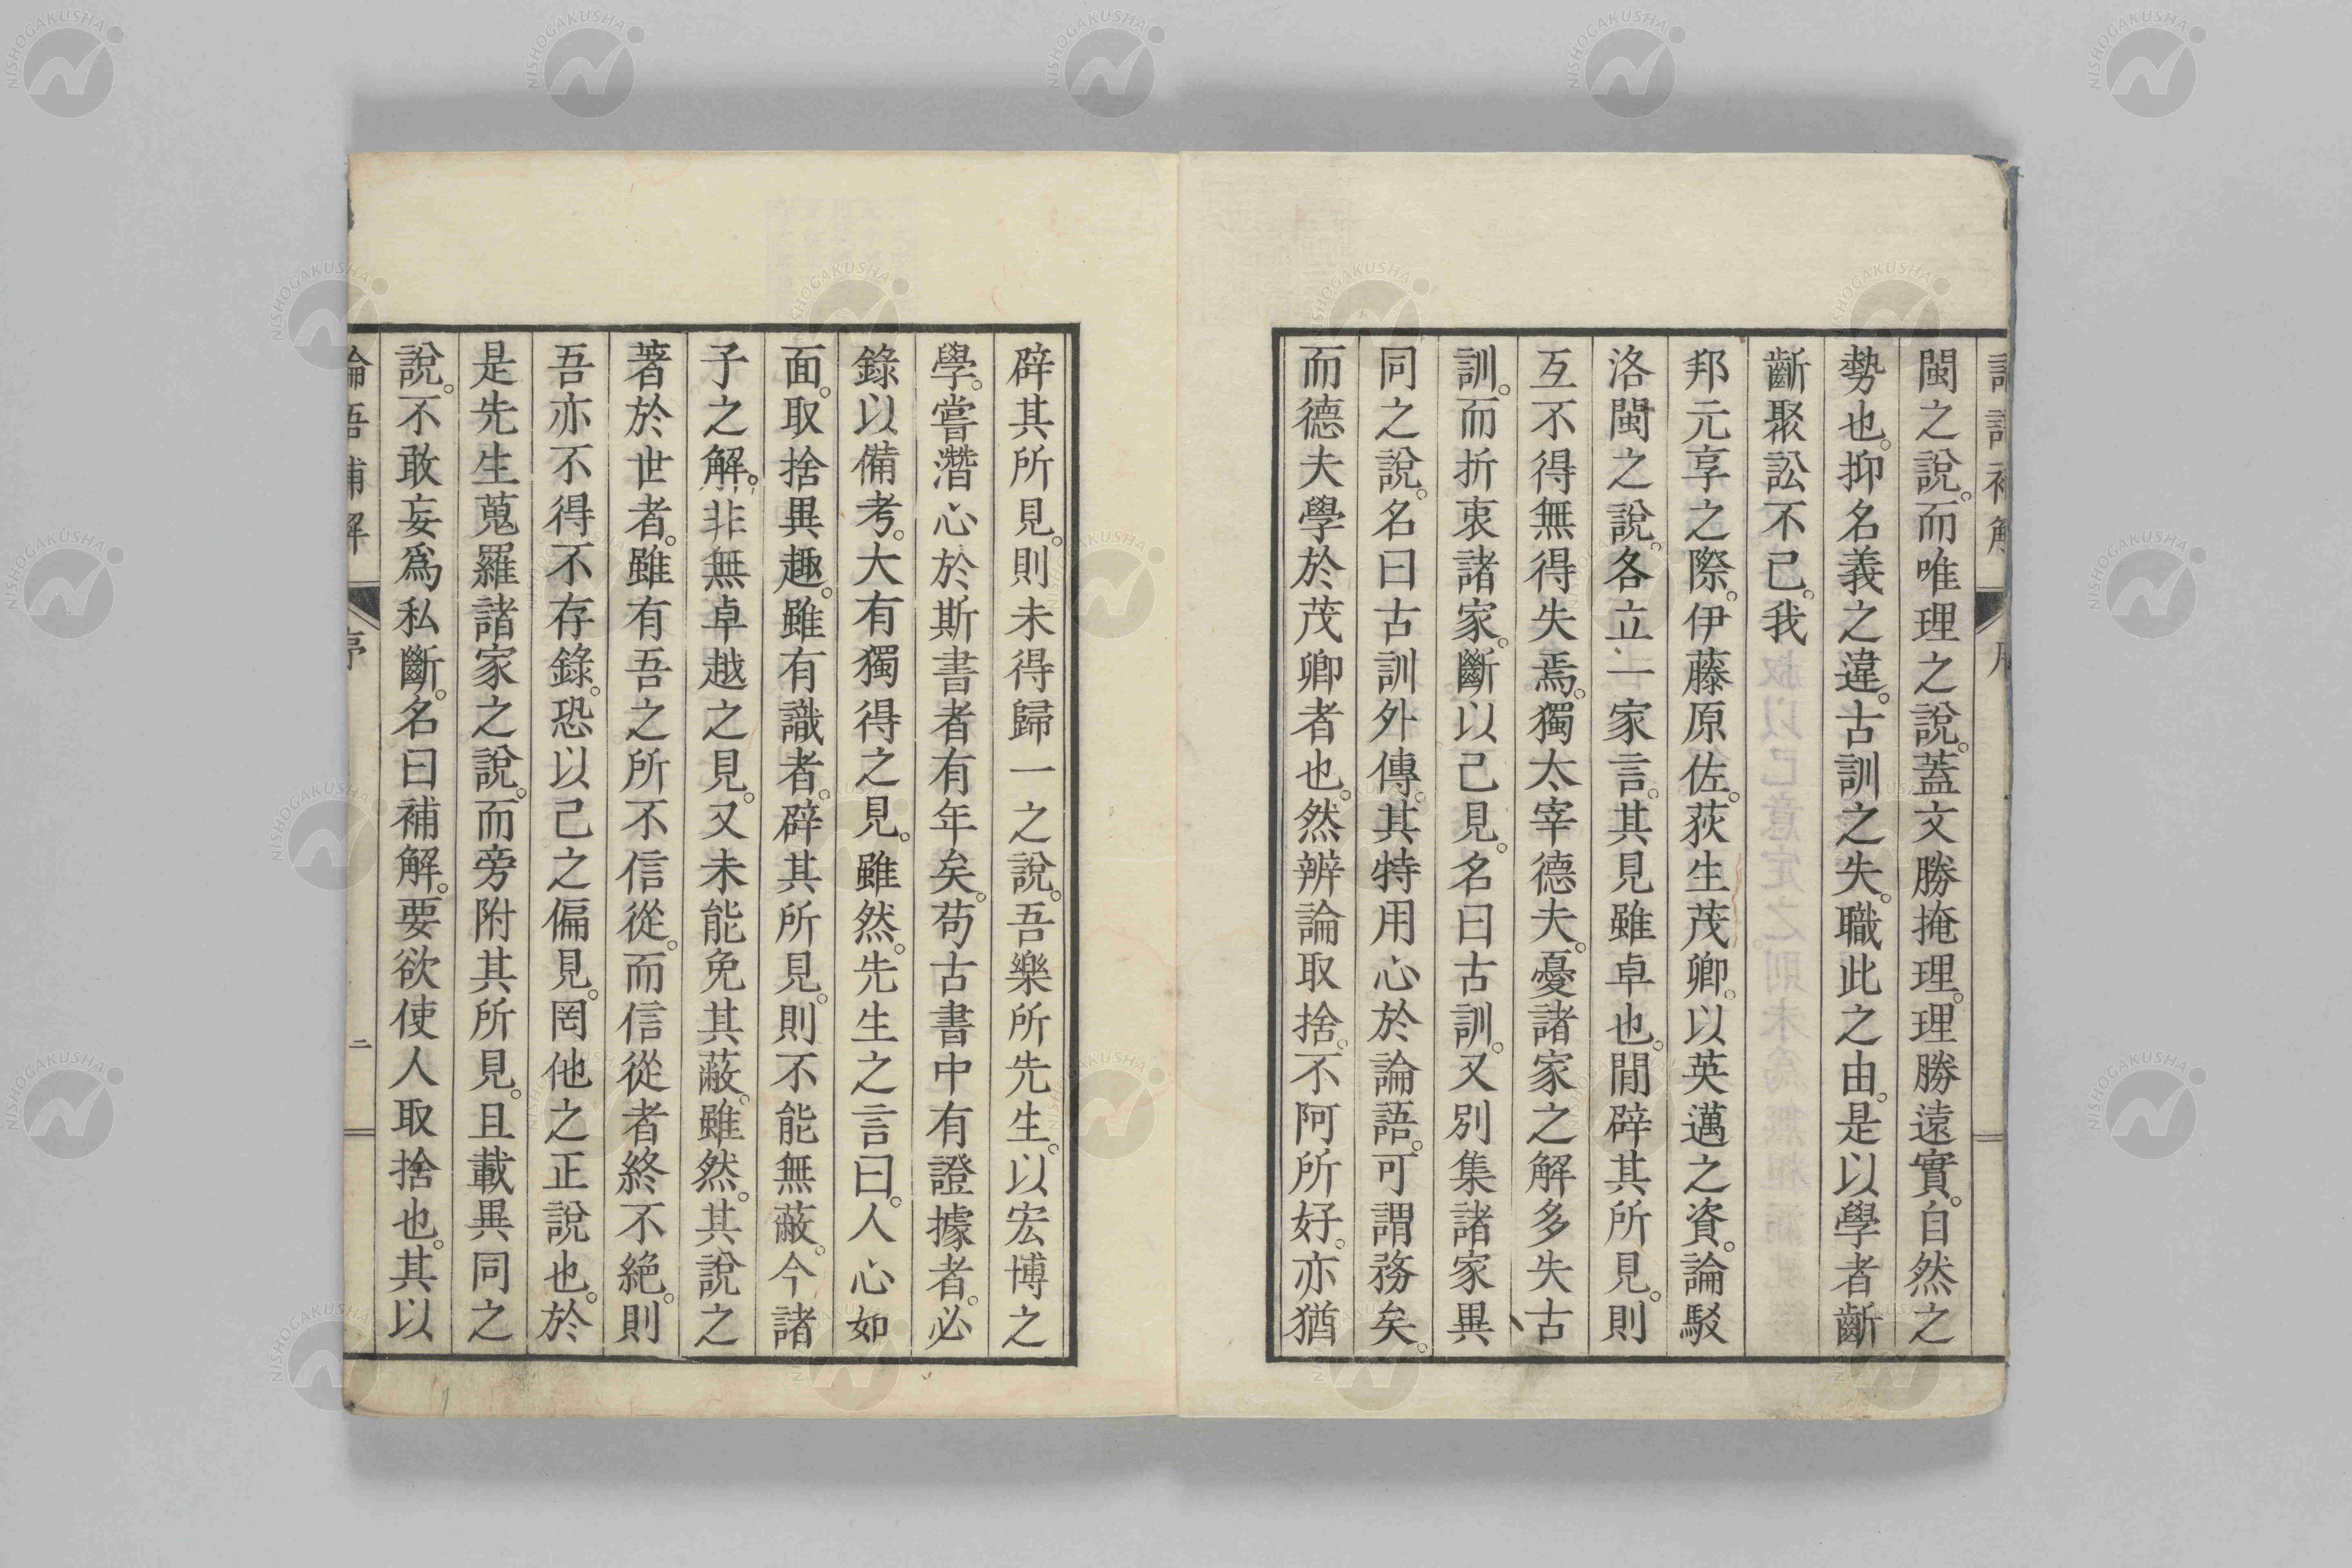 閩之說。而唯理之說。蓋文勝掩理。理勝遠實。自然之
勢也。抑名義之違。古訓之失。職此之由。是以學者齗
齗聚訟不已。我
邦元享之際。伊藤原佐。荻生茂卿。以英邁之資。論駁
洛閩之說。各立一家言。其見雖卓也。間辟其所見。則
互不得無得失焉。獨太宰德夫。憂諸家之解多失古
訓。而折衷諸家。斷以己見。名曰古訓。又別集諸家異
同之說。名曰古訓外傳。其特用心於論語。可謂務矣。
而德夫學於茂卿者也。然辨論取捨。不阿所好。亦猶
辟其所見。則未得歸一之說。吾樂所先生。以宏博之
學。嘗潛心於斯書者有年矣。苟古書中有證據者。必
錄以備考。大有獨得之見。雖然。先生之言曰。人心如
面。取捨異趣。雖有識者。辟其所見。則不能無蔽。今諸
子之解。非無卓越之見。又未能免其蔽。雖然。其說之
著於世者。雖有吾之所不信從。而信從者終不絕。則
吾亦不得不存錄。恐以己之偏見。罔他之正說也。於
是先生蒐羅諸家之說。而旁附其所見。且載異同之
說。不敢妄爲私斷。名曰補解。要欲使人取捨也。其以
論吾補解 序 二
NISHOGAKUSHA